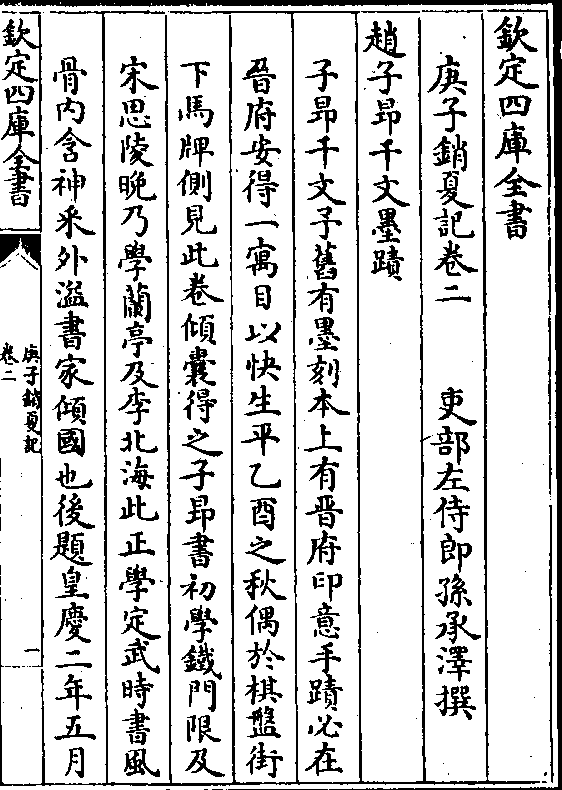 欽定四庫全書
庚子銷夏記卷二　吏部左侍郎孫承澤撰
趙子昂千文墨蹟
子昂千文予舊有墨刻本上有晋府印意手蹟必在
晋府安得一寓目以快生平乙酉之秋偶於棋盤街
下馬牌側見此卷傾囊得之子昂書初學鐵門限及
宋思陵晚乃學蘭亭及李北海此正學定武時書風
骨内含神采外溢書家傾國也後題皇慶二年五月
欽定四庫全書
庚子銷夏記
卷二
一